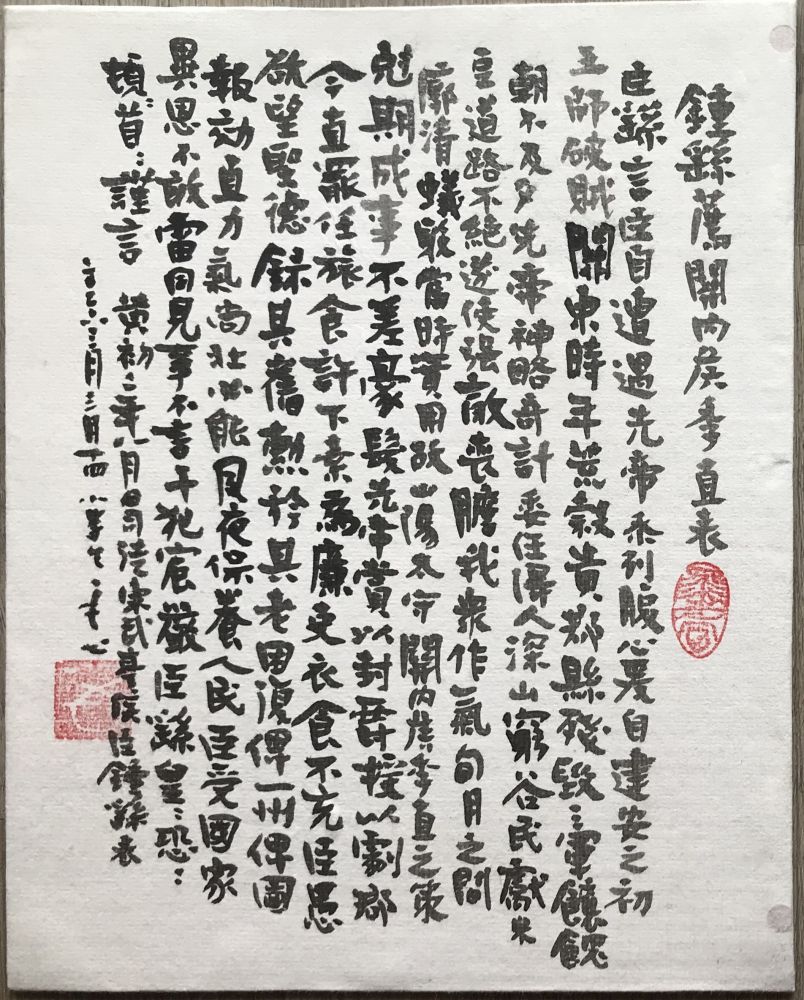 鍾繇薦關內侯季直表
臣繇言臣自遭遇先帝忝列腹心爰自建安之初
王師破賊關東時年荒穀貴郡縣殘毀三軍餽饟
朝不及夕先帝神略奇計委任得人深山窮谷民獻米
豆道路不絕遂使强敵喪膽我衆作氣旬月之間
廓清蟻聚當時實用故山陽太守關內侯季直之策
尅期成事不差豪髮先帝賞以封爵授以劇郡
今直罷任旅食許下素為廉吏衣食不充臣愚
欲望聖德錄其舊勳矜其老困復俾一州俾圖
報効直力氣尚壯必能夙夜保養人民臣受國家
異恩不敢雷同見事不言干犯宸嚴臣繇皇皇恐恐
頓首頓首謹言 黃初二年八月日司徒東武亭侯臣鍾繇表